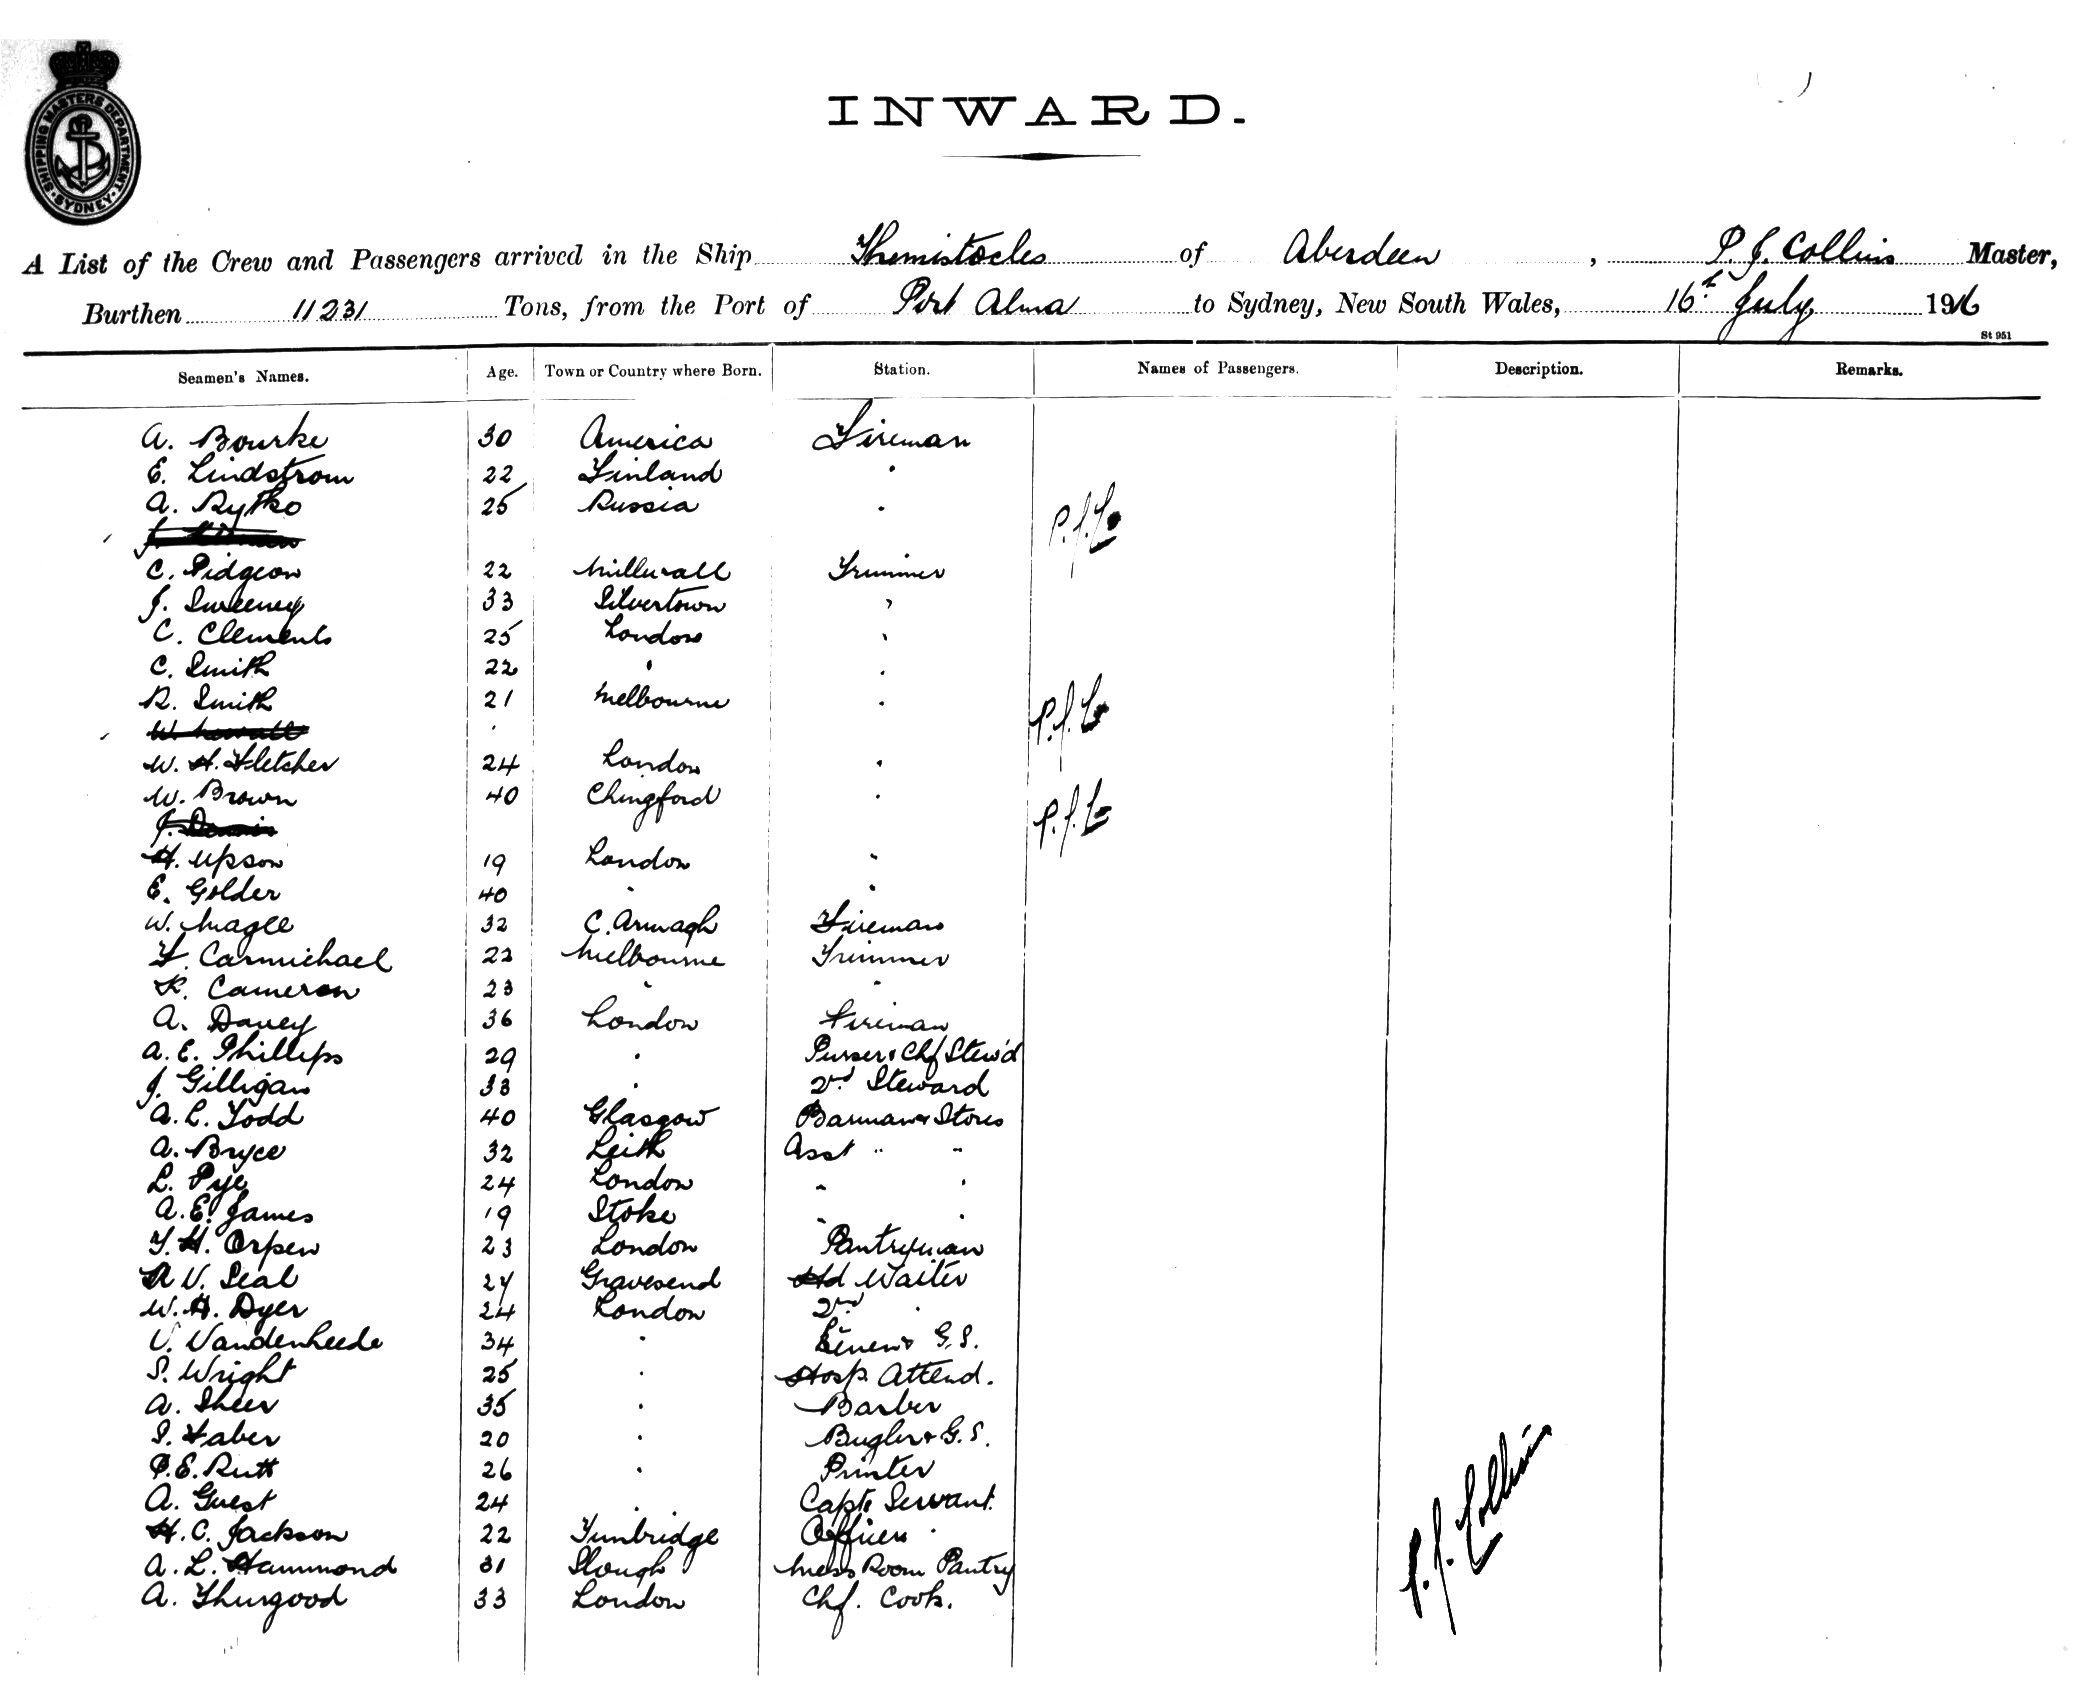 SHIPPING MASTERS DEPARTMENT
SYDNEY
INWARD.
A List of the Crew and Passengers arrived in the Ship Themistocles of Aberdeen, P. J. Collins Master,
Burthen 11231 Tons, from the Port of Port Alma to Sydney, New South Wales, 16th July 1916
St 951
Seamen's Names. Age. Town or Country where Born. Station. Names of Passengers. Description. Remarks.
A. Bourke 30 America Fireman
E. Lindstrom 22 Finland "
A. Rytko 25 Russia "
P.J.Co
C. Pidgeon 22 Millwall Trimmer
J. Sweeney 33 Silvertown "
C. Clements 25 London "
C. Smith 22 " "
R. Smith 21 Melbourne "
P.J.Co
W. H. Fletcher 24 London "
W. Brown 40 Chingford "
J. Dennis P.J.Co
H. Upson 19 London "
E. Golder 40 " "
W. Magee 32 C. Armagh Fireman
F. Carmichael 22 Melbourne Trimmer
R. Cameron 23 " "
A. Davey 36 London Fireman
A. E. Phillips 29 " Purser & Chf Stew'd
J. Gilligan 33 " 2nd Steward
A. L. Todd 40 Glasgow Barman & Stores
A. Bryce 32 Leith Asst " "
L. Pye 24 London " "
A. E. James 19 Stoke " "
T. H. Orpen 23 London Pantryman
A V. Seal 27 Gravesend Hd Waiter
W. H. Dyer 24 London 2nd "
V. Vandenheede 34 " Linen & G.S.
S. Wright 25 " Hosp. Attend.
A. Sheer 35 " Barber
S. Faber 20 " Bugler & G.S.
P. E. Rutt 26 " Printer
A. Guest 24 " Capts Servant.
H. C. Jackson 22 Tunbridge Officers "
A. L. Hammond 31 Slough Mess Room Pantry
A. Thurgood 33 London Chf. Cook.
P. J. Collins